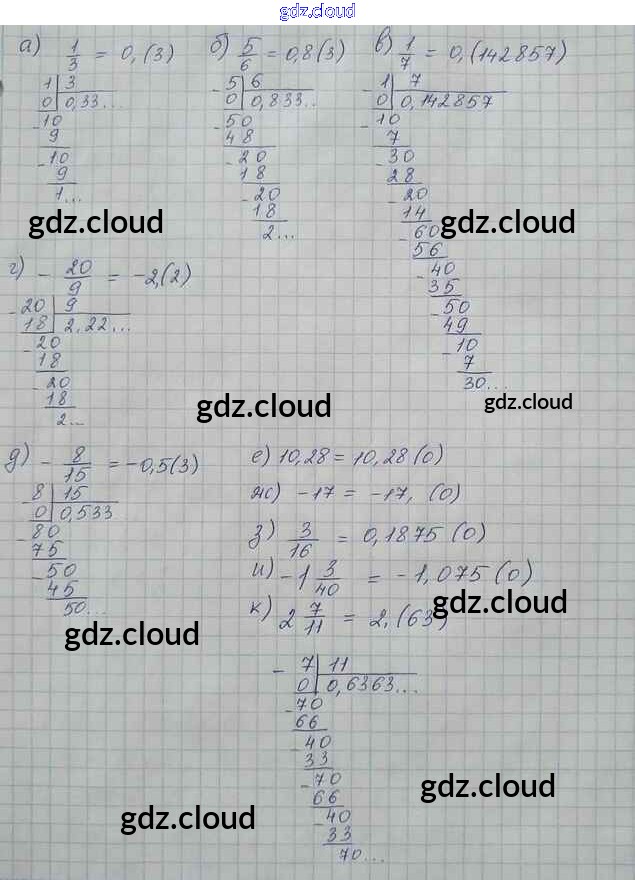 https://gdz.cloud
а) 1/3 = 0,(3)
1 | 3
0 | 0,33...
-10
9
-10
9
1...
б) 5/6 = 0,8(3)
-5 | 6
0 | 0,833...
-50
48
-20
18
-20
18
2...
в) 1/7 = 0,(142857)
-1 | 7
0 | 0,142857
-10
7
-30
28
-20
14
-60
56
-40
35
-50
49
-10
7
30...
gdz.cloud
gdz.cloud
г) - 20/9 = -2,(2)
-20 | 9
18 | 2,22...
-20
18
-20
18
2...
gdz.cloud
gdz.cloud
д) - 8/15 = -0,5(3)
-8 | 15
0 | 0,533
-80
75
-50
45
50...
gdz.cloud
е) 10,28 = 10,28(0)
ж) -17 = -17,(0)
з) 3/16 = 0,1875(0)
и) -1 3/40 = -1,075(0)
к) 2 7/11 = 2,(63)
gdz.cloud
- 7 | 11
0 | 0,6363...
-70
66
-40
33
-70
66
-40
33
70...
gdz.cloud
gdz.cloud